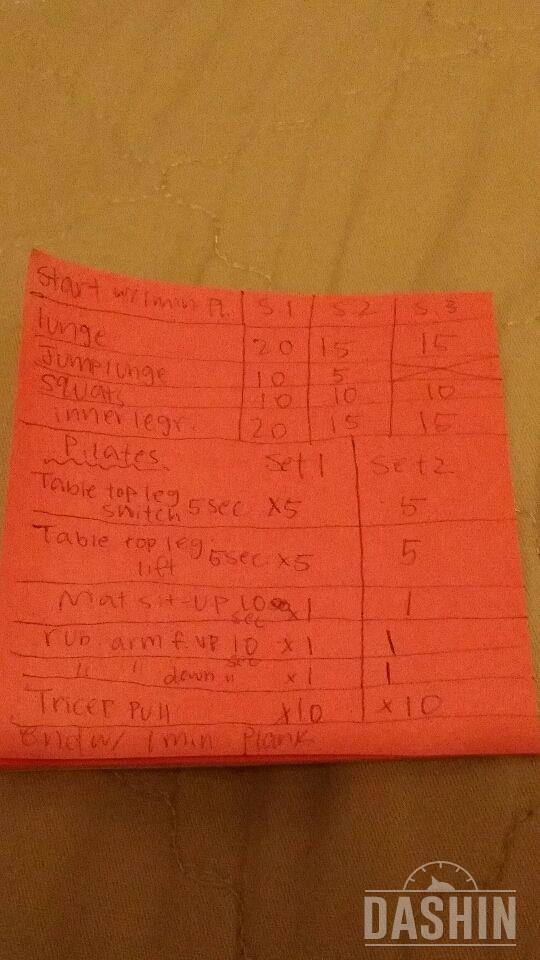 Start w/ 1 min Pl. S.1 S.2 S.3
lunge 20 15 15
Jumplunge 10 5
Squats 10 10 10
inner leg r. 20 15 15
Pilates Set 1 Set 2
Table top leg
switch 5 sec x5 5
Table top leg
lift 5 sec x5 5
Mat sit-up 10 sec x1 1
rub. arm f. up 10 sec x1 1
" " down " x1 1
Tricep pull x10 x10
End w/ 1 min Plank
DASHIN